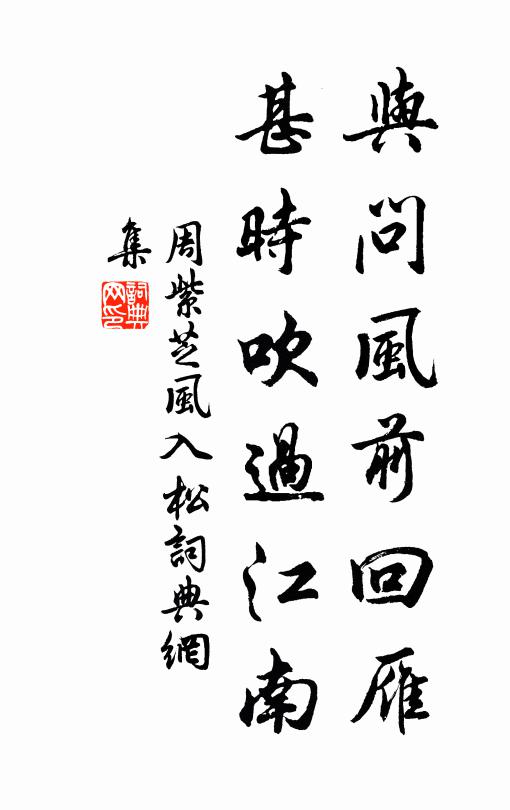 與問風前回雁
甚時吹過江南
周紫芝風入松詞典網
集
詞典
網印